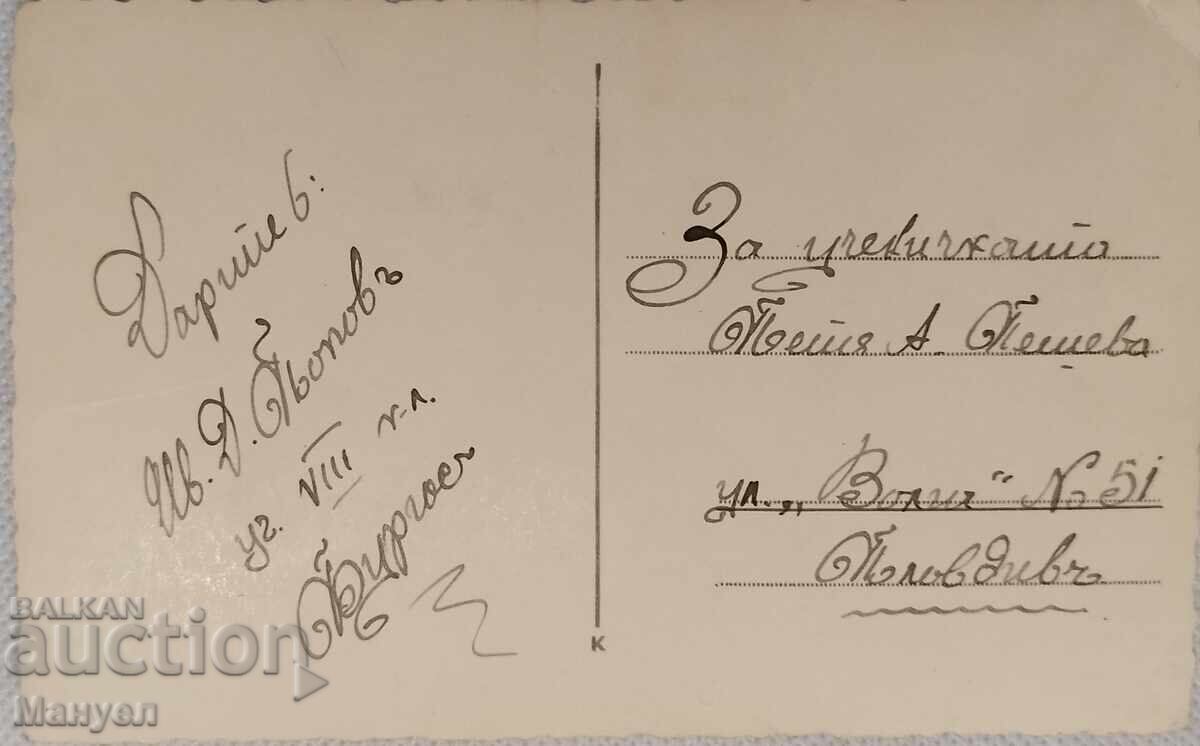 Дарител:
Ив. Д. Попов
уч. VIII кл.
Бургасъ
За ученичката
Петя А. Пешева
ул. „Волга" № 51
Пловдивъ
K
BALKAN
auction
Мануел